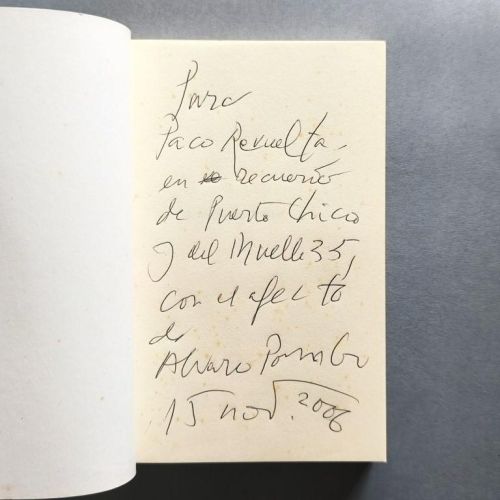 Para
Paco Revuelta,
en recuerdo
de Puerto Chico
y del Muelle 35,
con el afecto
de
Alvaro Pombo
15 nov. 2006